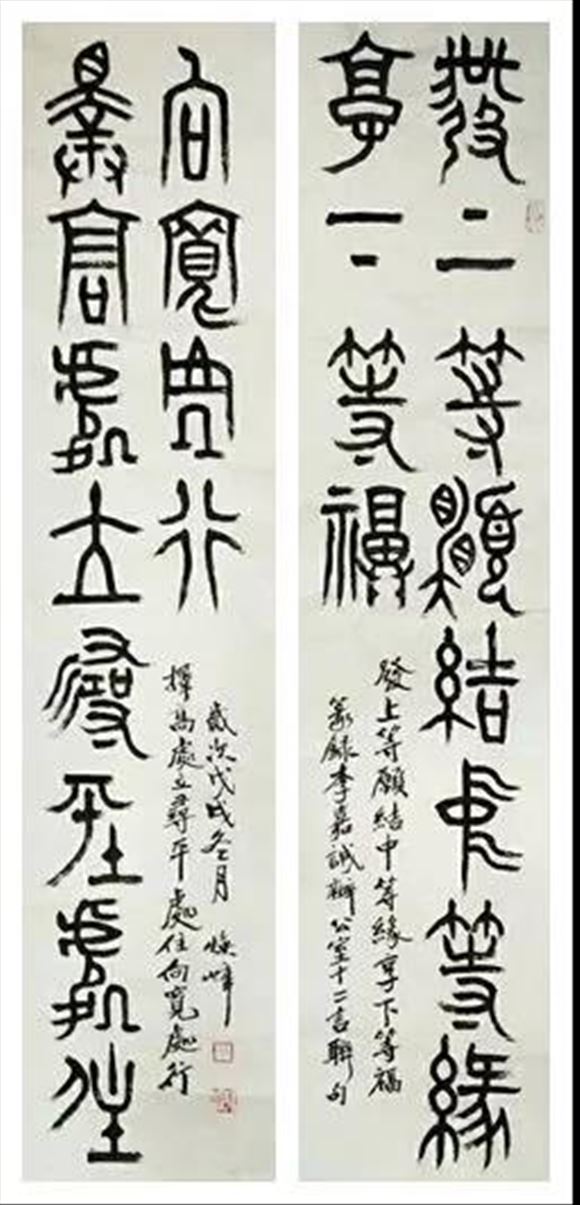 發上等願結中等緣
享下等福
發上等願結中等緣享下等福
篆錄李嘉誠辦公室十二言聯句
擇高處立尋平處住
向寬處行
擇高處立尋平處住向寬處行
歲次戊戌冬月